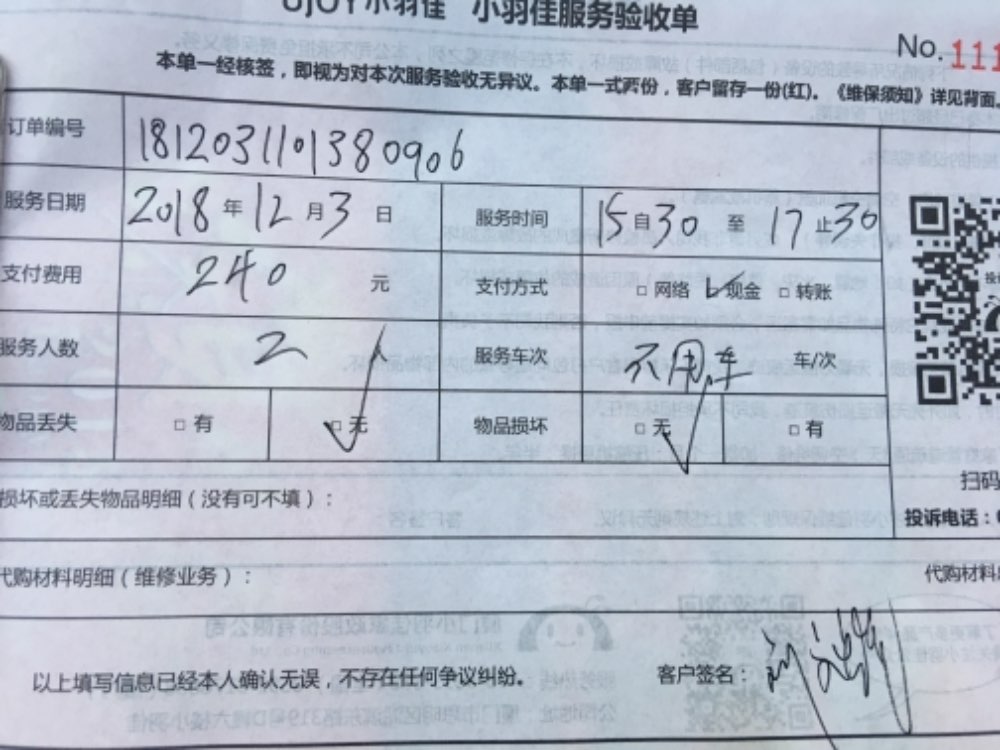 UJOY小羽佳 小羽佳服务验收单
No.111
本单一经核签，即视为对本次服务验收无异议。本单一式两份，客户留存一份(红)。《维保须知》详见背面
订单编号 1812031101380906
服务日期 2018年12月3日 服务时间 15自30至17止30
支付费用 240元 支付方式 □网络 ☑现金 □转账
服务人数 2 服务车次 不用车 车/次
物品丢失 □有 ☑无 物品损坏 ☑无 □有
扫码
损坏或丢失物品明细（没有可不填）：
投诉电话：
代购材料明细（维修业务）： 代购材料
以上填写信息已经本人确认无误，不存在任何争议纠纷。 客户签名：